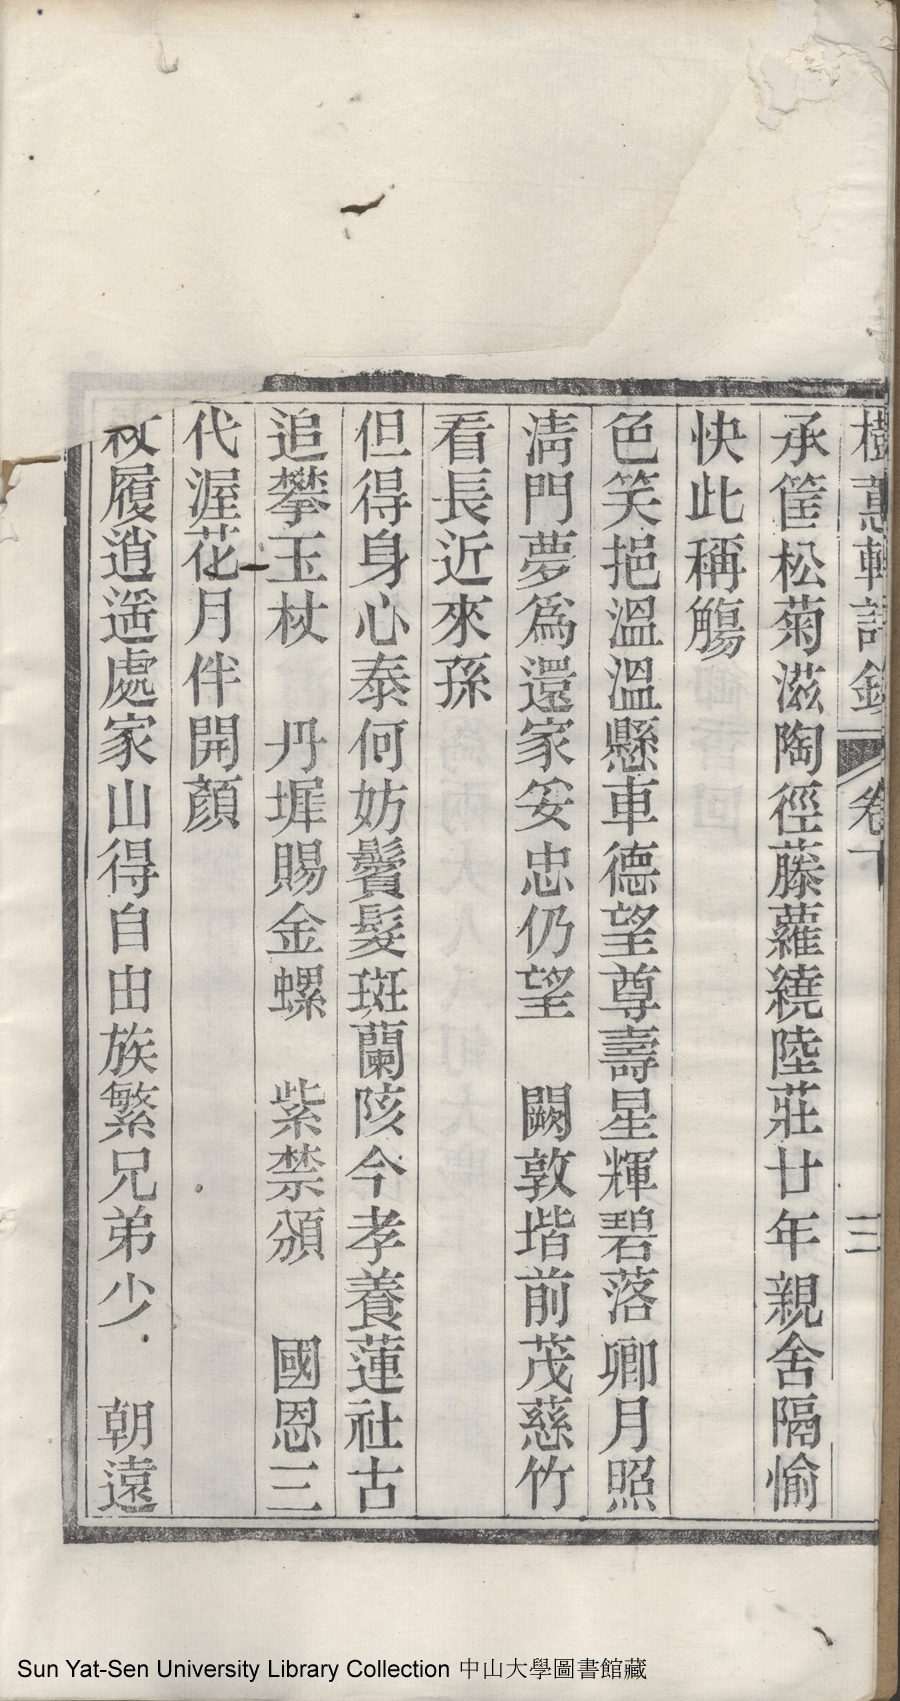 樹蕙軒詩鈔 卷下 三
承筐松菊滋陶徑藤蘿繞陸莊廿年親舍隔愉
快此稱觴
色笑挹溫溫懸車德望尊壽星輝碧落卿月照
淸門夢爲還家安忠仍望 闕敦堦前茂慈竹
看長近來孫
但得身心泰何妨鬢髮斑蘭陔今孝養蓮社古
追攀玉杖 丹墀賜金螺 紫禁頒 國恩三
代渥花月伴開顏
杖履逍遥處家山得自由族繁兄弟少 朝遠
Sun Yat-Sen University Library Collection 中山大學圖書館藏